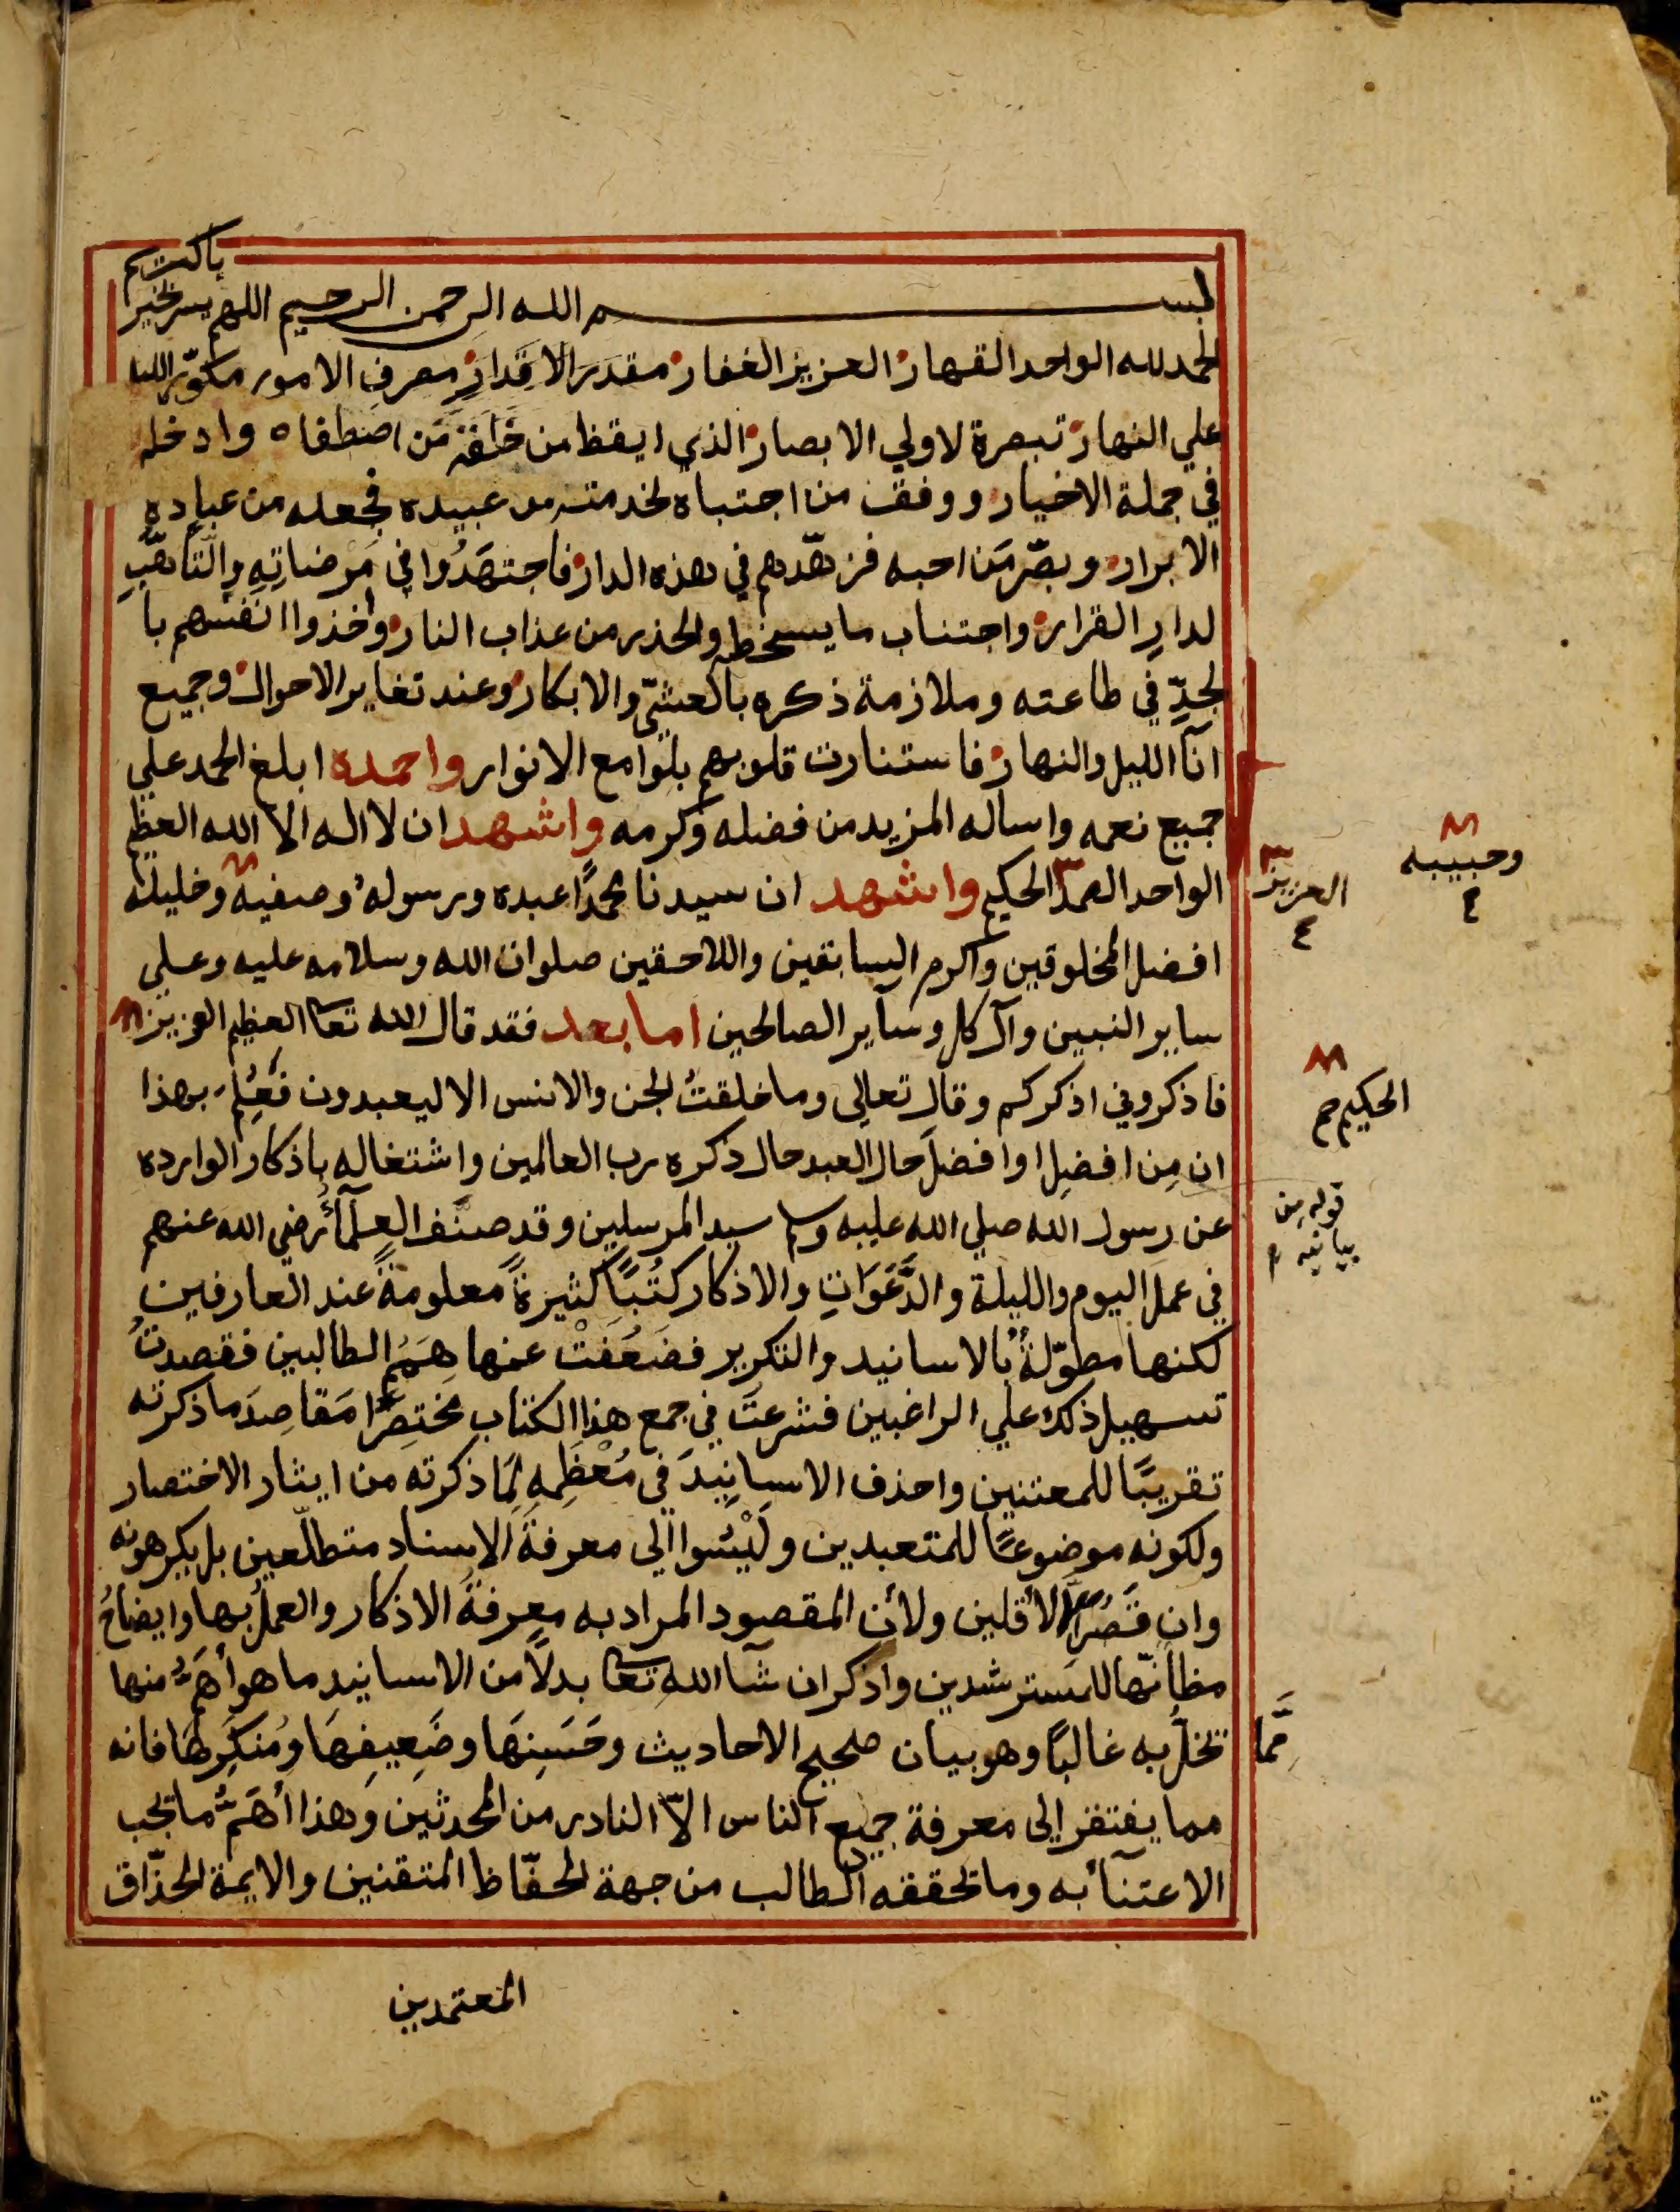 بسم الله الرحمن الرحيم اللهم يسر بخير يا كريم
الحمد لله الواحد القهار العزيز الغفار مقدر الاقدار مصرف الامور مكوّر الليل
علي النهار تبصرة لاولي الابصار الذي ايقظ من خلقه مَن اصطفاه وادخله
في جملة الاخيار ووفق من اجتباه لخدمته من عبيده فجعله من عباده
الابرار وبصّر مَن احبه فزهّدهم في هذه الدار فاجتهَدُوا في مَرضاتِهِ والتّاهّبِ
لدارِ القرار واجتناب ما يسخطه والحذر من عذاب النار واخذوا انفسهم با
لجدِّ في طاعته وملازمة ذكره بالعشيّ والابكار وعند تغاير الاحوال وجميع
انآ الليل والنهار فاستنارت قلوبهم بلوامع الانوار واحمده ابلغ الحمد علي
جميع نعمه واساله المزيد من فضله وكرمه واشهد ان لا اله الا الله العظيم
الواحد الصمد الحكيم واشهد ان سيدنا محمدًا عبده ورسوله وصفيه وخليله
العزيز
وحبيبه
افضل المخلوقين واكرم السابقين واللاحقين صلوات الله وسلامه عليه وعلي
ساير النبين وآل كل وسآير الصالحين اما بعد فقد قال الله تعا العظيم العزيز
الحكيم صح
فاذكروني اذكركم وقال تعالي وما خلقتُ الجن والانس الا ليعبدون فعُلِمَ بهذا
ان مِن افضلِ اوافضلَ حال العبد حال ذكره رب العالمين واشتغاله باذكار الوارده
قوله من
بيانيه م
عن رسول الله صلي الله عليه وسلم سيد المرسلين وقد صنّف العلمآئُ رضي الله عنهم
في عمل اليوم والليلة والدَّعَوَاتِ والاذكار كتُبًا كثيرةً معلومةً عند العارفين
لكنها مطوّلةٌ بالاسانيد والتكرير فضَعُفَتْ عنها هِمَمُ الطالبين فقصدتُ
تسهيل ذلك علي الراغبين فشرعتُ في جمع هذا الكتاب مختصِرًا مَقاصِدَ ما ذكرته
تقريبًا للمعتنين واحذف الاسانِيدَ في مُعْظَمِهِ لِمَا ذكرته من ايثار الاختصار
ولكونه موضوعًا للمتعبدين ولَيْسُوا الي معرفةَ الاسناد متطلّعين بل يكرهونه
وان قَصُرَ الا الأقلين ولأن المقصود المراد به معرفةُ الاذكار والعملُ بها وايضاحُ
مظانّها للمسترشدين واذكر ان شآ الله تعا بدلًا من الاسانيد ما هو أهَمُّ منها
مِمَّا
تخلّ به غالبًا وهو بيان صحيح الاحاديث وحَسَنِهَا وضَعِيفِهَا ومُنكَرِهَا فانه
مما يفتقر إلى معرفة جميع الناس الاّ النادر من المحدثين وهذا أهَمُّ ما تجب
الاعتنآئُ به وما تحققه الطالب من جهة الحفّاظ المتقنين والايمة الحذّاق
المعتمدين